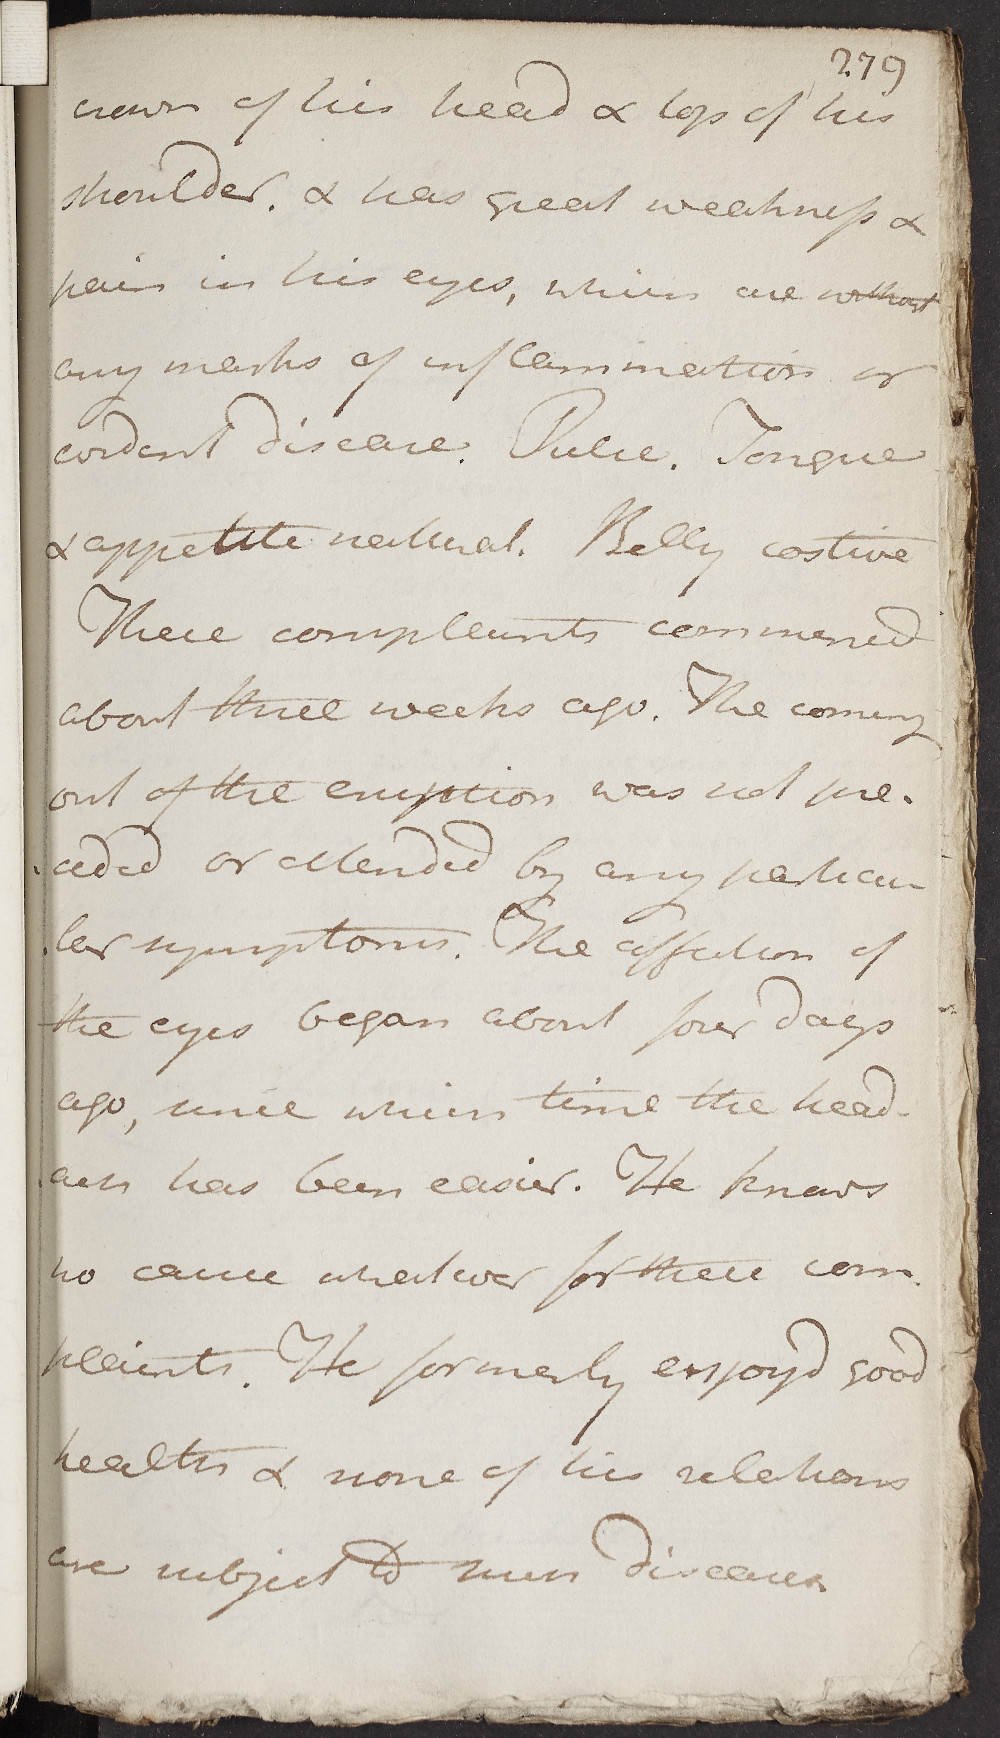 279
crown of his head & top of his
shoulder. & has great weakness &
pain in his eyes, which are without
any marks of inflammation or
evident disease. Pulse. Tongue
& appetite natural. Belly costive
These complaints commenced
about three weeks ago. The coming
out of the eruption was not pre-
ceded or attended by any particu-
lar symptoms. The affection of
the eyes began about four days
ago, since which time the head-
ach has been easier. He knows
no cause whatever for these com-
plaints. He formerly enjoy'd good
health & none of his relations
are subject to such diseases